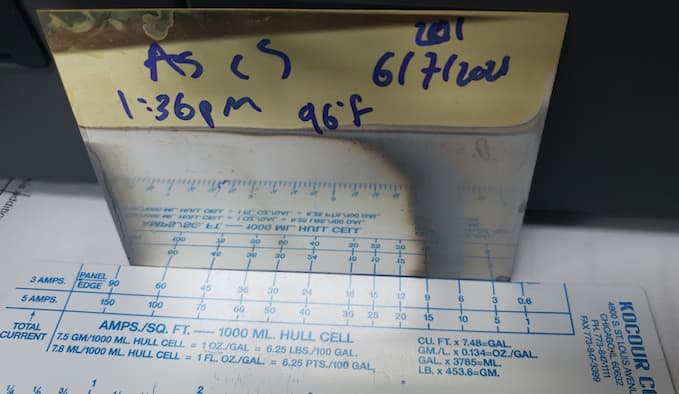 As is
2021
6/7/2021
1:36pm 96°F
3 AMPS. PANEL EDGE 90 60 45 36 30 24 18 15 12 9 6 3 0.6
5 AMPS. 150 100 75 60 50 40 30 25 20 15 10 5 1
↑
TOTAL
CURRENT
AMPS./SQ. FT. — 1000 ML. HULL CELL
7.5 GM/1000 ML. HULL CELL = 1 OZ./GAL = 6.25 LBS./100 GAL.
7.8 ML/1000 ML. HULL CELL = 1 FL. OZ./GAL. = 6.25 PTS./100 GAL.
CU. FT. x 7.48=GAL.
GM./L. x 0.134=OZ./GAL.
GAL. x 3785=ML.
LB. x 453.6=GM.
KOCOUR
4800 S. ST. LOUIS AVEN
CHICAGO, IL 60632
PH. 773-847-1111
FAX 773-847-3399
1/4 1/2 3/4 1 2